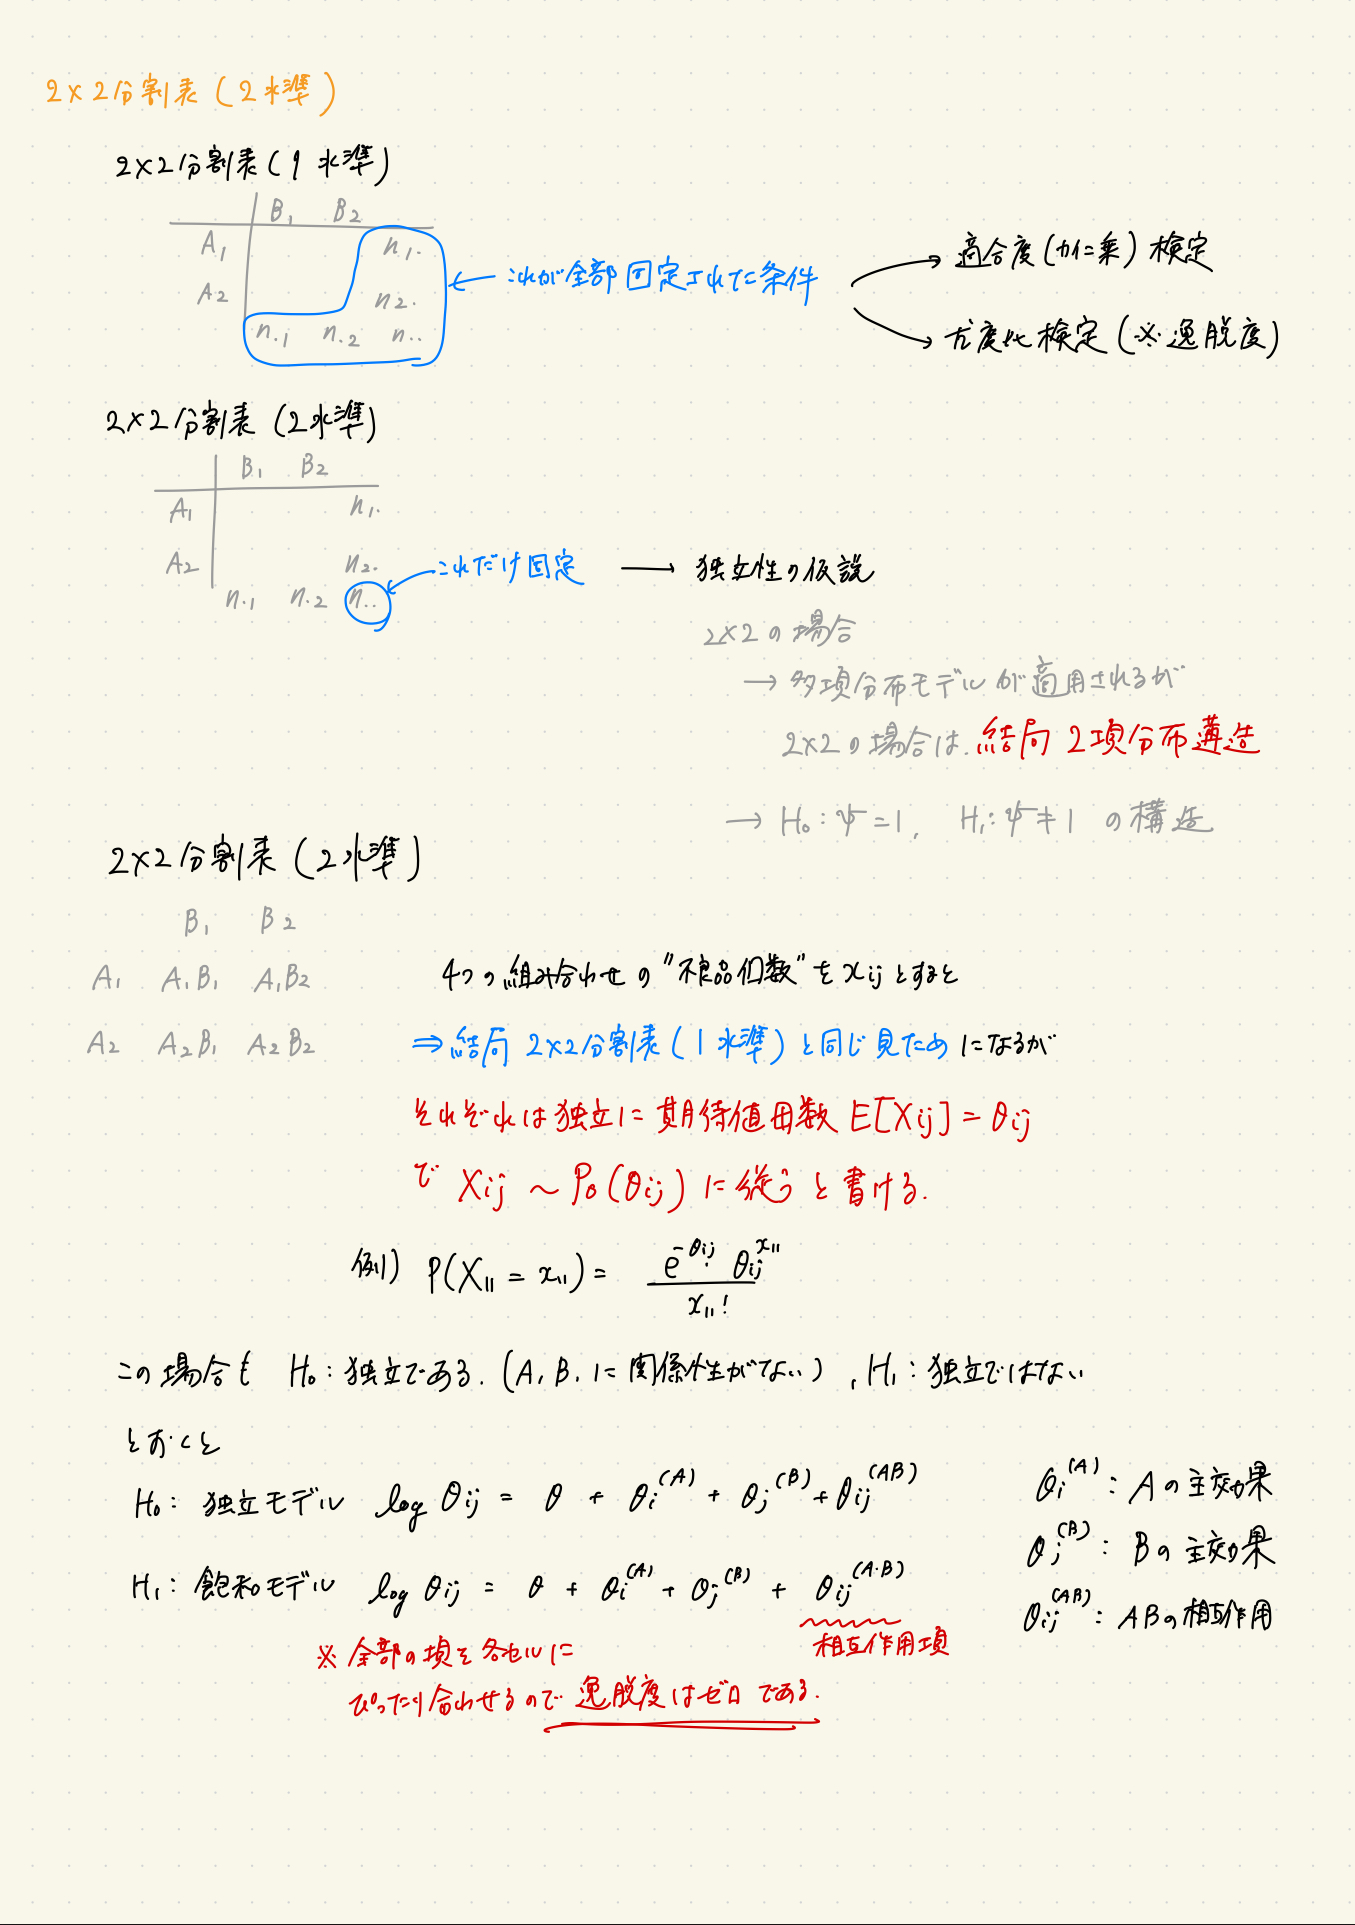 2×2分割表(2水準)
2×2分割表(1水準)
B₁ B₂
A₁ n₁.
A₂ n₂.
n.₁ n.₂ n..
これが全部固定された条件
適合度(カイ二乗)検定
尤度比検定(※逸脱度)
2×2分割表(2水準)
B₁ B₂
A₁ n₁.
A₂ n₂.
n.₁ n.₂ n..
これだけ固定 → 独立性の仮説
2×2の場合
→ 多項分布モデルが適用されるが
2×2の場合は、結局2項分布構造
→ H₀:ψ=1, H₁:ψ≠1 の構造
2×2分割表(2水準)
B₁ B₂
A₁ A₁B₁ A₁B₂
A₂ A₂B₁ A₂B₂
4つの組み合わせの"不良品個数"をxijとすると
⇒ 結局2×2分割表(1水準)と同じ見ためになるが
それぞれは独立に期待値母数 E[Xij]=θij
で Xij ~ Po(θij)に従うと書ける.
例) P(X₁₁=x₁₁)= e^{-θij}・θij^{x₁₁} / x₁₁!
この場合も H₀:独立である.(A,B,に関係性がない), H₁:独立ではない
とおくと
H₀: 独立モデル log θij = θ + θi^(A) + θj^(B) + θij^(AB)
H₁: 飽和モデル log θij = θ + θi^(A) + θj^(B) + θij^(A・B)
相互作用項
※全部の項を各セルに
ぴったり合わせるので逸脱度はゼロである.
θi^(A): Aの主効果
θj^(B): Bの主効果
θij^(AB): ABの相互作用